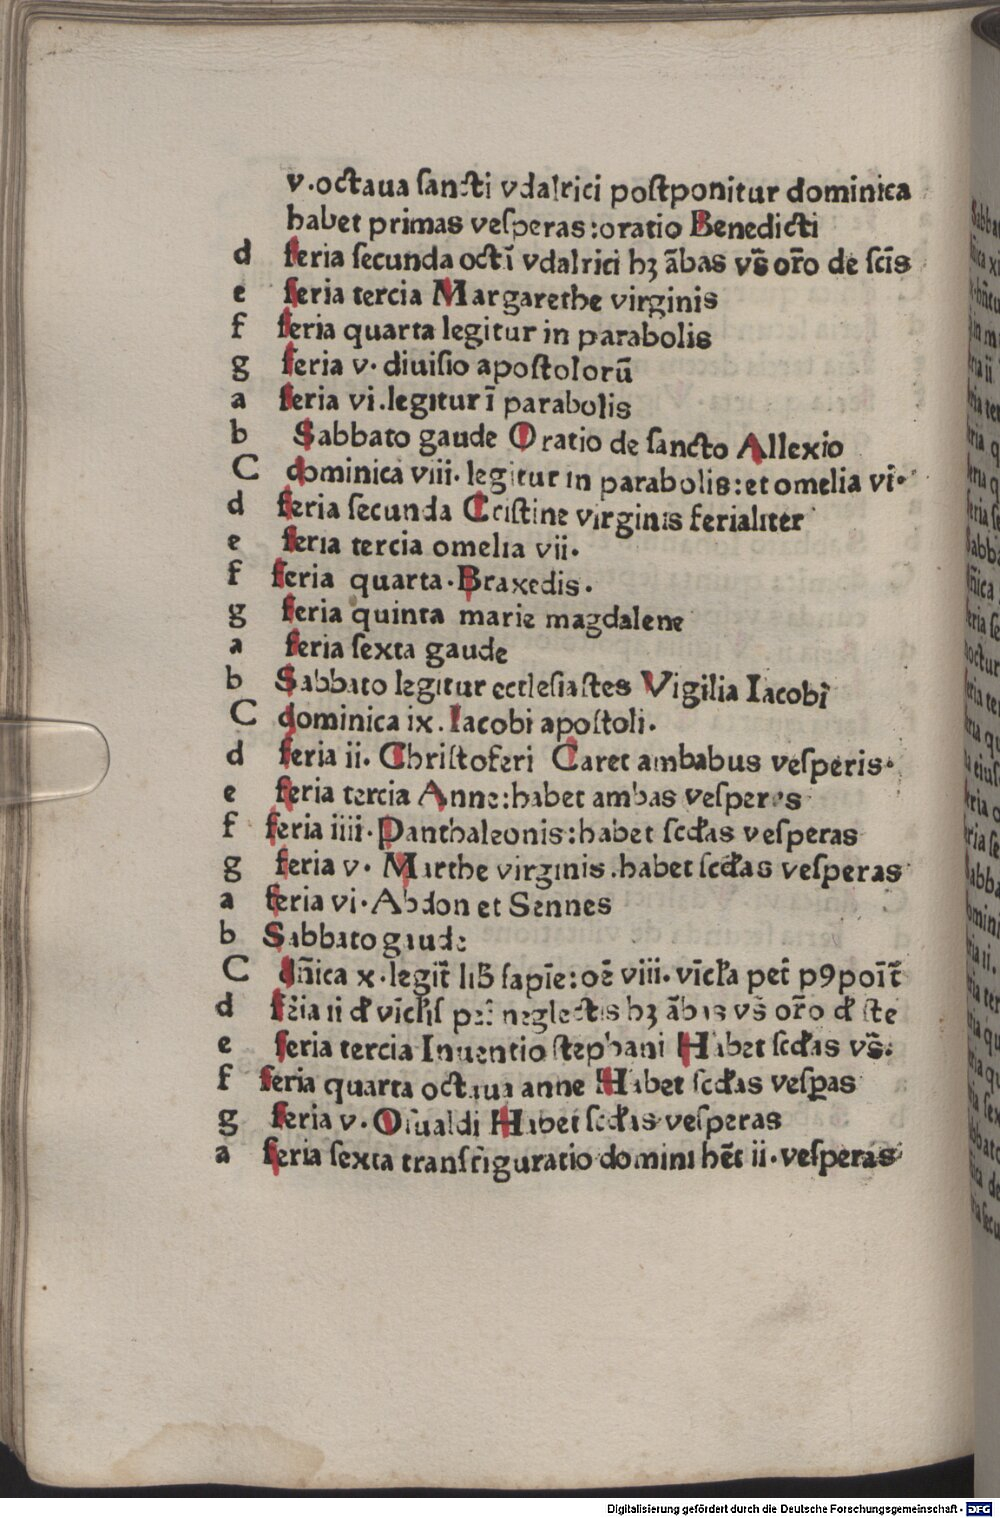 v.octaua sancti vdalrici postponitur dominica
habet primas vesperas:oratio Benedicti
d feria secunda octĩ vdalrici hꝫ ãbas vs̃ or̃o de scĩs
e feria tercia Margarethe virginis
f feria quarta legitur in parabolis
g feria v. diuisio apostolorũ
a feria vi.legitur ĩ parabolis
b Sabbato gaude Oratio de sancto Allexio
C dominica viii. legitur in parabolis:et omelia vi.
d feria secunda Cristine virginis ferialiter
e feria tercia omelia vii.
f feria quarta.Braxedis.
g feria quinta marie magdalene
a feria sexta gaude
b Sabbato legitur ecclesiastes Vigilia Iacobi
C dominica ix. Iacobi apostoli.
d feria ii. Christoferi Caret ambabus vesperis.
e feria tercia Anne:habet ambas vesperas
f feria iiii.Panthaleonis:habet scdas vesperas
g feria v. Marthe virginis.habet scdas vesperas
a feria vi.Abdon et Sennes
b Sabbato gaude
C dñica x.legit̃ lib̃ sapiẽ:oẽ viii. vĩcla pet̃ p9poĩt̃
d feria ii neglectis hꝫ ãbas vs̃ or̃o d ste
e feria tercia Inuentio stephani Habet scdas vs̃.
f feria quarta octaua anne Habet scdas vesꝑas
g feria v. Osualdi Habet scdas vesperas
a feria sexta transfiguratio domini hẽt ii.vesperas
Sabba
Digitalisierung gefördert durch die Deutsche Forschungsgemeinschaft - DFG